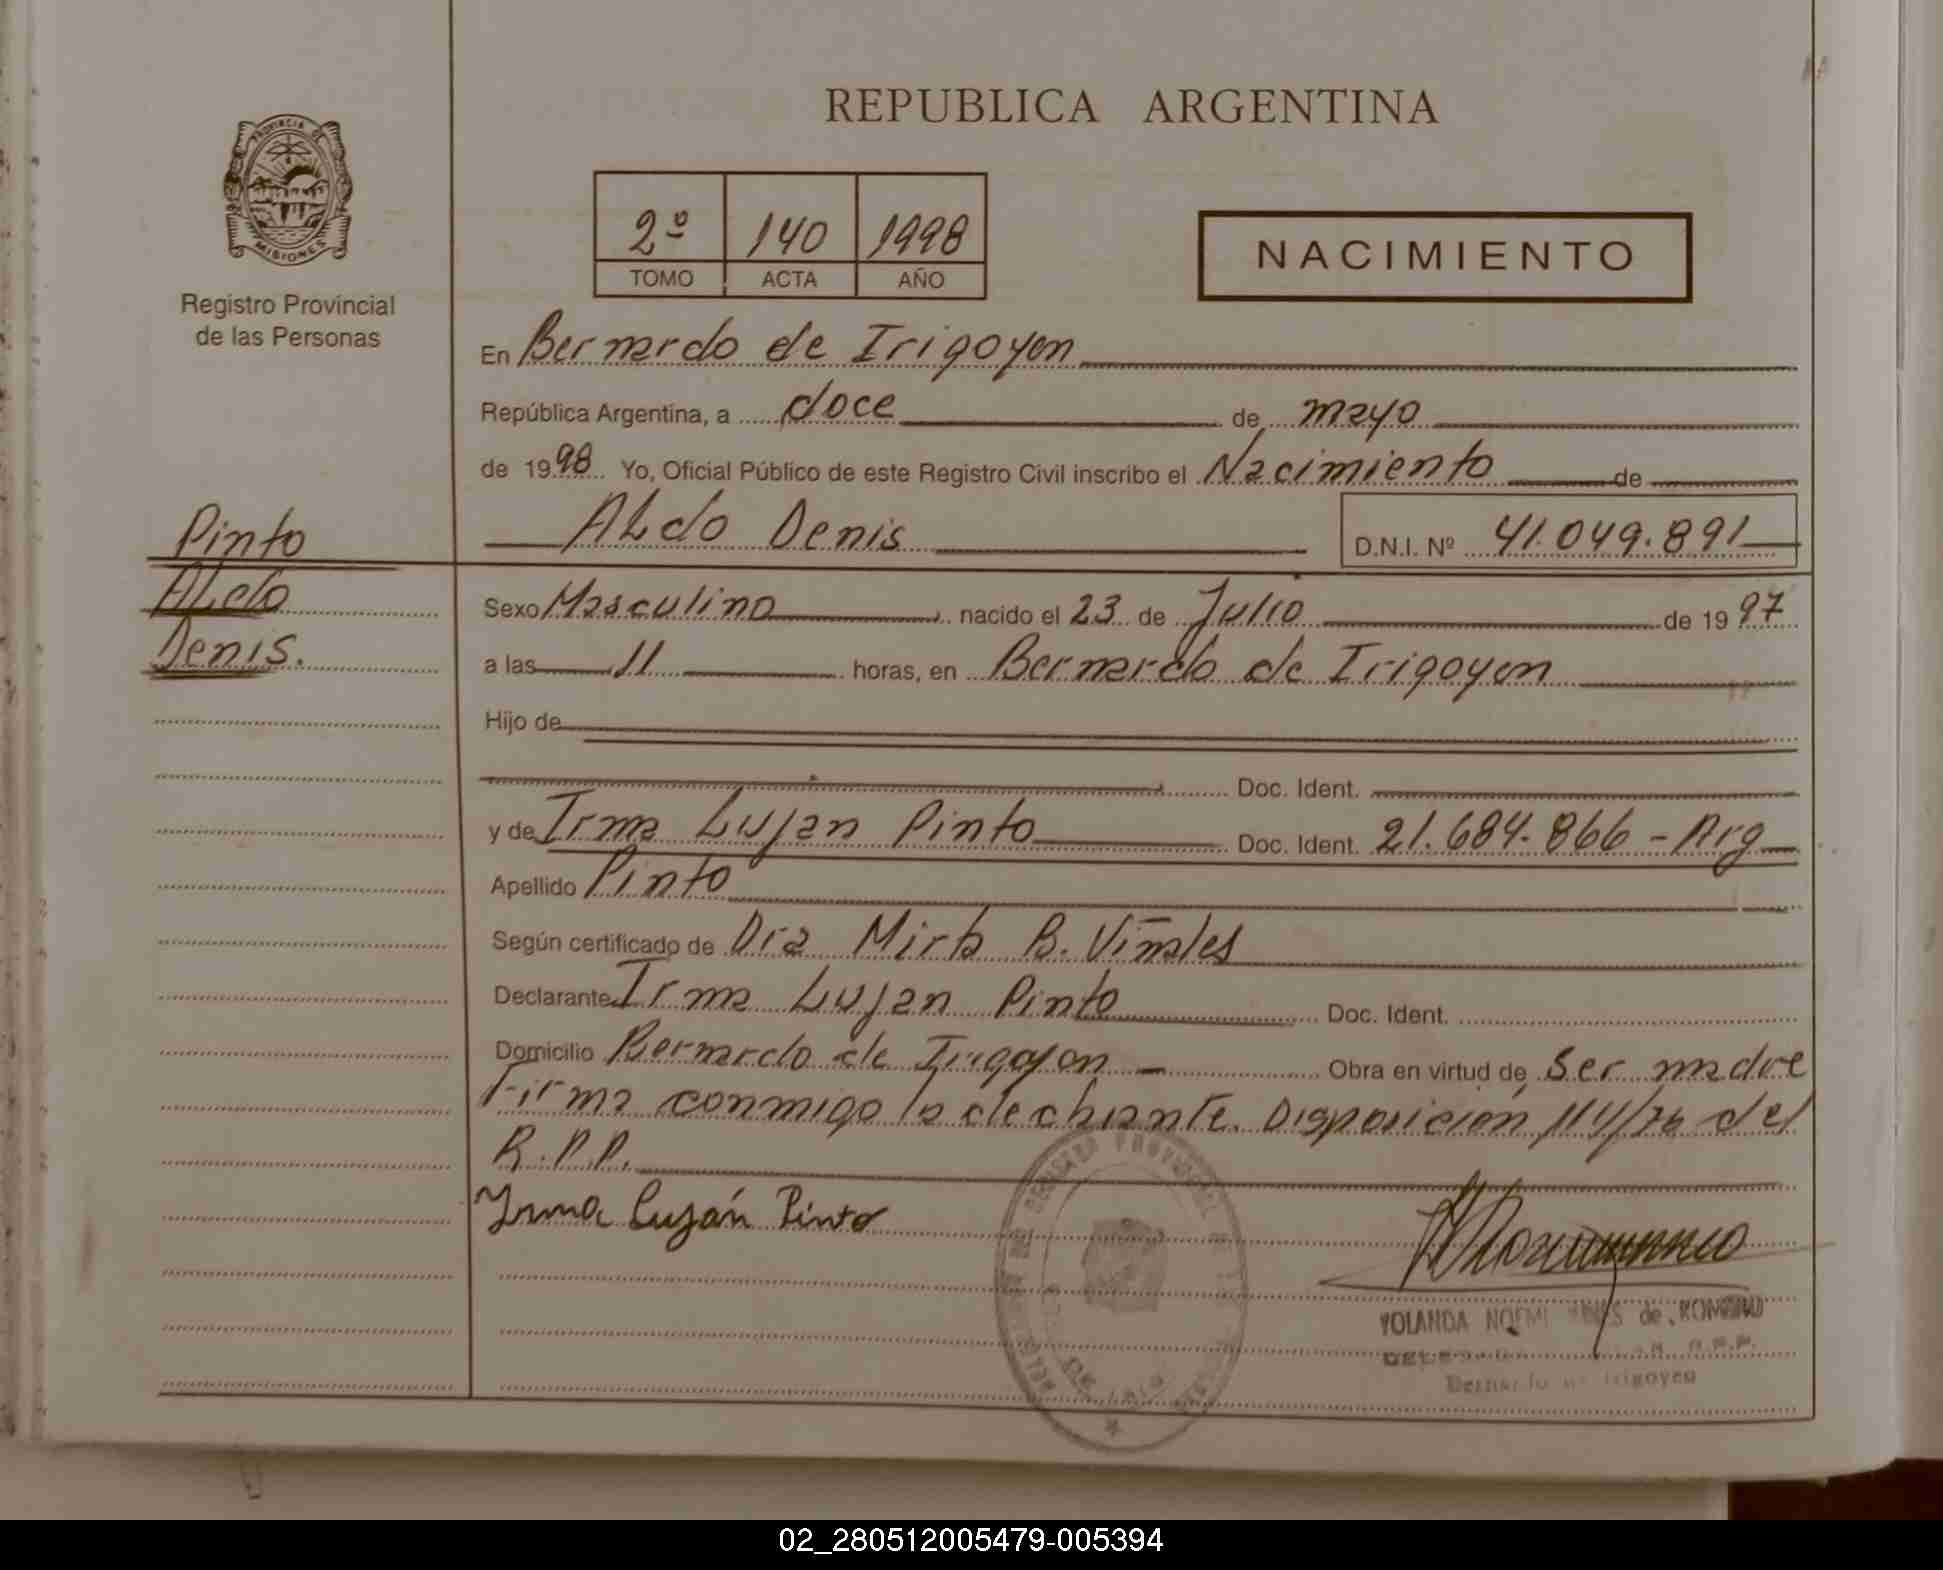 REPUBLICA ARGENTINA
PROVINCIA DE
MISIONES
Registro Provincial
de las Personas
2º 140 1998
TOMO ACTA AÑO
NACIMIENTO
En Bernardo de Irigoyen
República Argentina, a doce de mayo
de 1998 Yo, Oficial Público de este Registro Civil inscribo el Nacimiento de
Aldo Denis D.N.I. Nº 41.049.891
Pinto
Aldo
Denis.
Sexo Masculino nacido el 23 de Julio de 1997
a las 11 horas, en Bernardo de Irigoyen
Hijo de
Doc. Ident.
y de Irma Lujan Pinto Doc. Ident. 21.684.866 - Arg
Apellido Pinto
Según certificado de Dra Mirta B. Viñales
Declarante Irma Lujan Pinto Doc. Ident.
Domicilio Bernardo de Irigoyen Obra en virtud de Ser madre
Firma conmigo la declarante. Disposición 114/76 del
R.P.P.
Irma Luján Pinto
REGISTRO PROVINCIAL
YOLANDA NOEMI de ROMERO
R.P.P.
Bernardo de Irigoyen
02_280512005479-005394